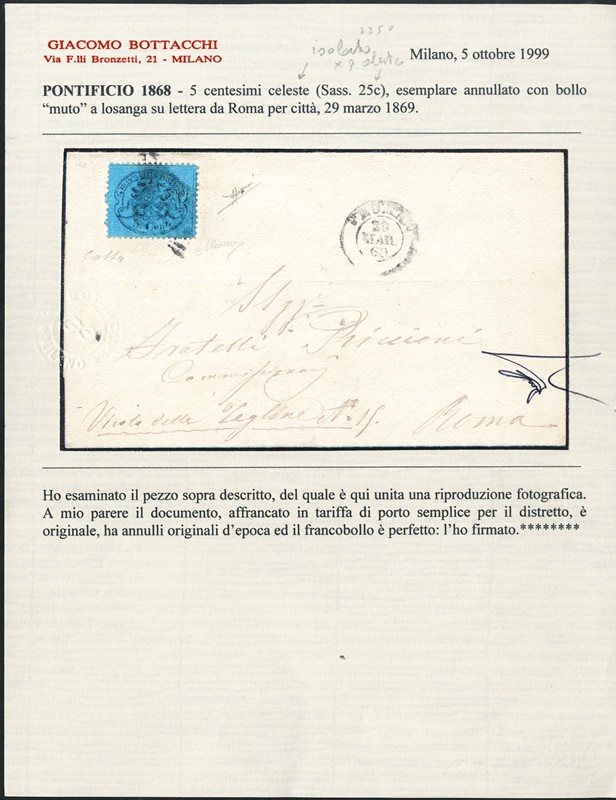 2250
GIACOMO BOTTACCHI
isolato
Milano, 5 ottobre 1999
Via F.lli Bronzetti, 21 - MILANO
PONTIFICIO 1868 - 5 centesimi celeste (Sass. 25c), esemplare annullato con bollo
“muto” a losanga su lettera da Roma per città, 29 marzo 1869.
29
MAR.
69
Fratelli Piccioni
Vicolo delle N° 15. Roma
Ho esaminato il pezzo sopra descritto, del quale è qui unita una riproduzione fotografica.
A mio parere il documento, affrancato in tariffa di porto semplice per il distretto, è
originale, ha annulli originali d’epoca ed il francobollo è perfetto: l’ho firmato.********